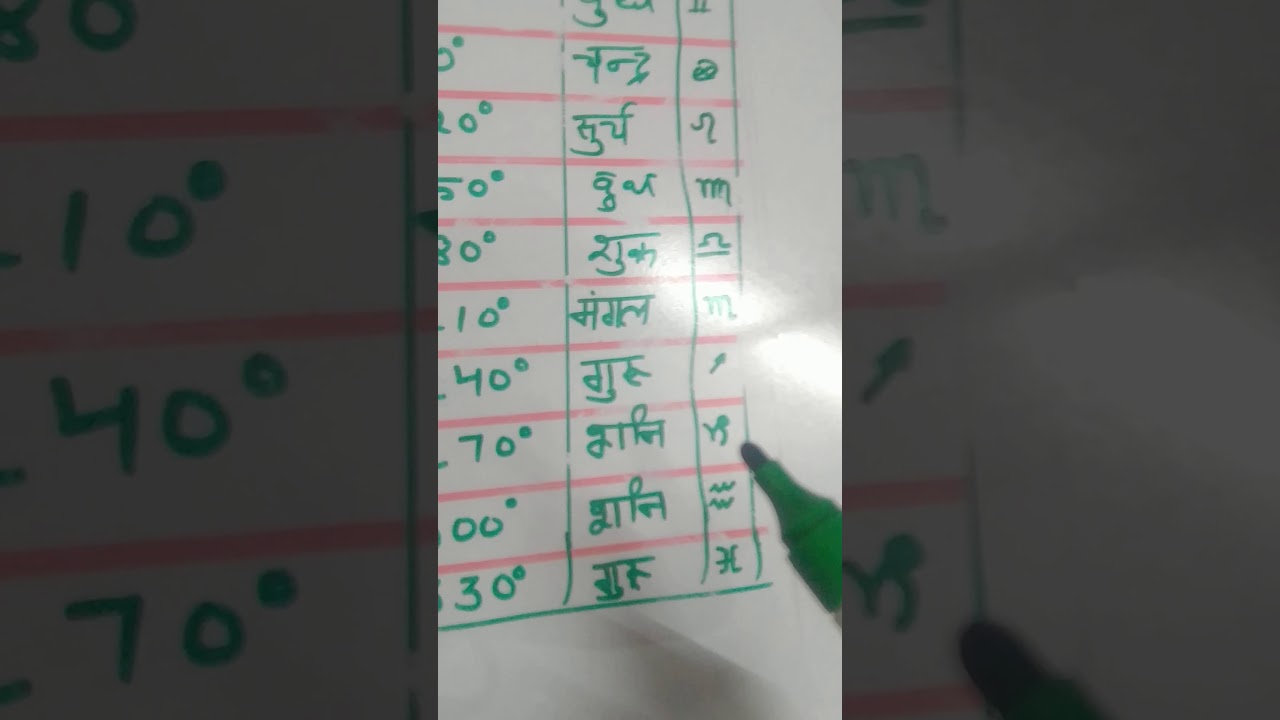 बुध ♊
0° चन्द्र ♋
20° सुर्य ♌
50° बुध ♍
80° शुक्र ♎
10° मंगल ♏
40° गुरू ♐
70° शनि ♑
00° शनि ♒
30° गुरू ♓